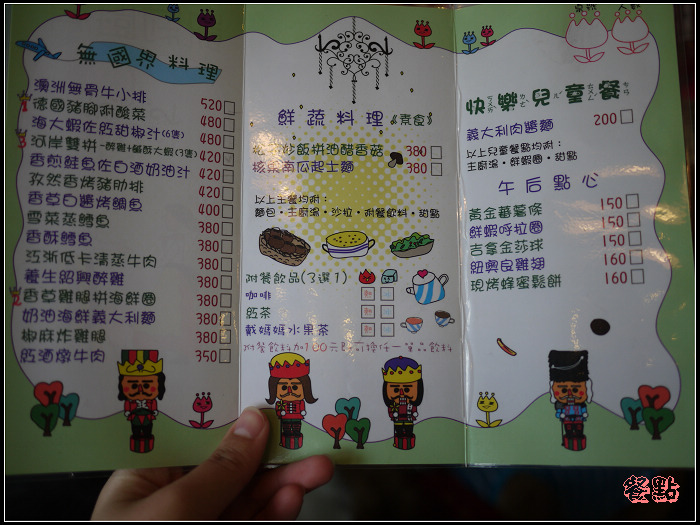 無國界料理
澳洲無骨牛小排 520
德國豬腳附酸菜 480
海大蝦佐紅甜椒汁(6隻) 480
河岸雙拼-醉雞+鹹酥大蝦(3隻) 420
香煎鮭魚佐白酒奶油汁 420
孜然香烤豬肋排 420
香草白醬烤鯛魚 400
雪菜蒸鱈魚 380
香酥鱈魚 380
江浙低卡清蒸牛肉 380
養生紹興醉雞 380
香草雞腿拼海鮮圈 380
奶油海鮮義大利麵 380
椒麻炸雞腿 380
紅酒燉牛肉 350
鮮蔬料理 (素食)
炒飯拼油醋香菇 380
南瓜起士麵 380
以上主餐均附:
麵包·主廚湯·沙拉·附餐飲料·甜點
附餐飲品(3選1)
咖啡 熱
紅茶 熱
戴媽媽水果茶 熱
快樂兒童餐
ㄎㄨㄞˋ ㄌㄜˋ ㄦˊ ㄊㄨㄥˊ ㄘㄢ
義大利肉醬麵 200
以上兒童餐點均附:
主廚湯·鮮蝦圈·甜點
午后點心
黃金蕃薯條 150
鮮蝦呼拉圈 150
吉拿金莎球 150
紐奧良雞翅 160
現烤蜂蜜鬆餅 160
餐點